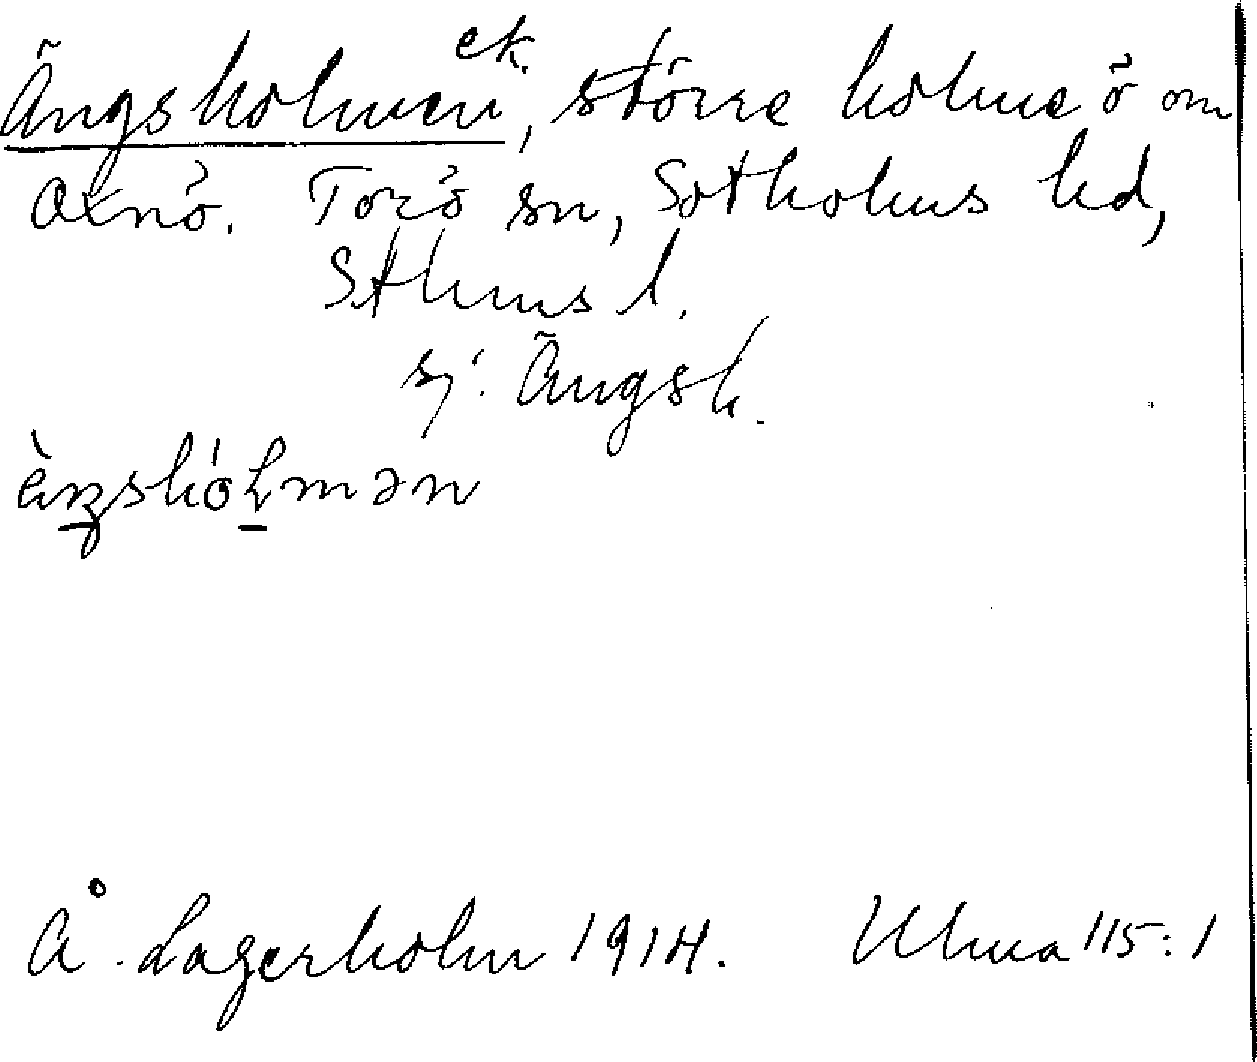 Ängsholmen ek., större holme ö om
Oxnö. Torö sn, Sotholms hd,
Sthms l.
sj. Ängsh.
Å. Lagerholm 1914. Ulma 115:1